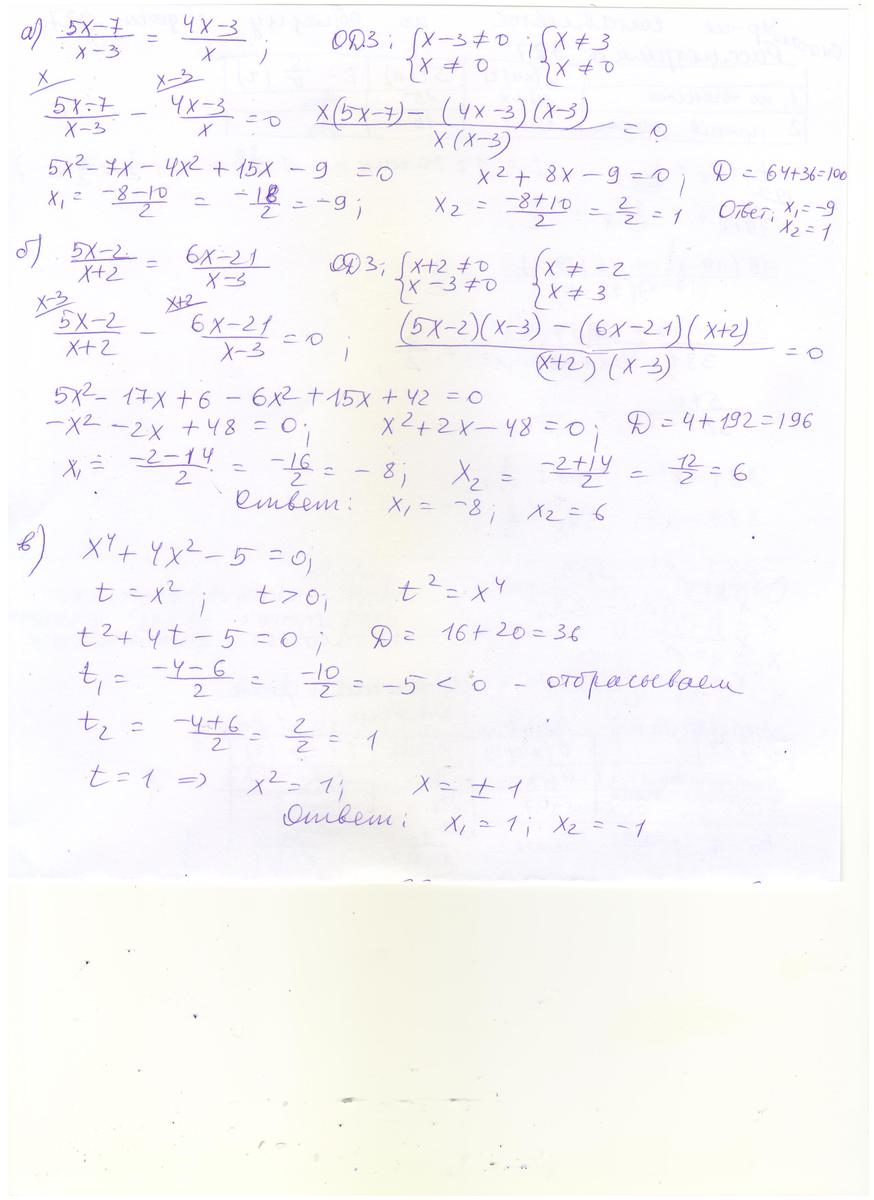 а) (5x-7)/(x-3) = (4x-3)/x ; ОДЗ: {x-3≠0 ; x≠0 {x≠3 x≠0
x/ (5x-7)/(x-3) - x-3/ (4x-3)/x = 0 (x(5x-7) - (4x-3)(x-3))/(x(x-3)) = 0
5x² - 7x - 4x² + 15x - 9 = 0 x² + 8x - 9 = 0 ; D = 64+36=100
x₁ = (-8-10)/2 = -18/2 = -9 ; x₂ = (-8+10)/2 = 2/2 = 1 Ответ: x₁=-9 x₂=1
б) (5x-2)/(x+2) = (6x-21)/(x-3) ОДЗ: {x+2≠0 x-3≠0 {x≠-2 x≠3
x-3/ (5x-2)/(x+2) - x+2/ (6x-21)/(x-3) = 0 ; ((5x-2)(x-3) - (6x-21)(x+2))/((x+2)(x-3)) = 0
5x² - 17x + 6 - 6x² + 15x + 42 = 0
-x² - 2x + 48 = 0 ; x² + 2x - 48 = 0 ; D = 4+192=196
x₁ = (-2-14)/2 = -16/2 = -8 ; x₂ = (-2+14)/2 = 12/2 = 6
Ответ: x₁ = -8 ; x₂ = 6
в) x⁴ + 4x² - 5 = 0 ;
t = x² ; t > 0 ; t² = x⁴
t² + 4t - 5 = 0 ; D = 16+20=36
t₁ = (-4-6)/2 = -10/2 = -5 < 0 - отбрасываем
t₂ = (-4+6)/2 = 2/2 = 1
t = 1 => x² = 1 ; x = ± 1
Ответ: x₁ = 1 ; x₂ = -1